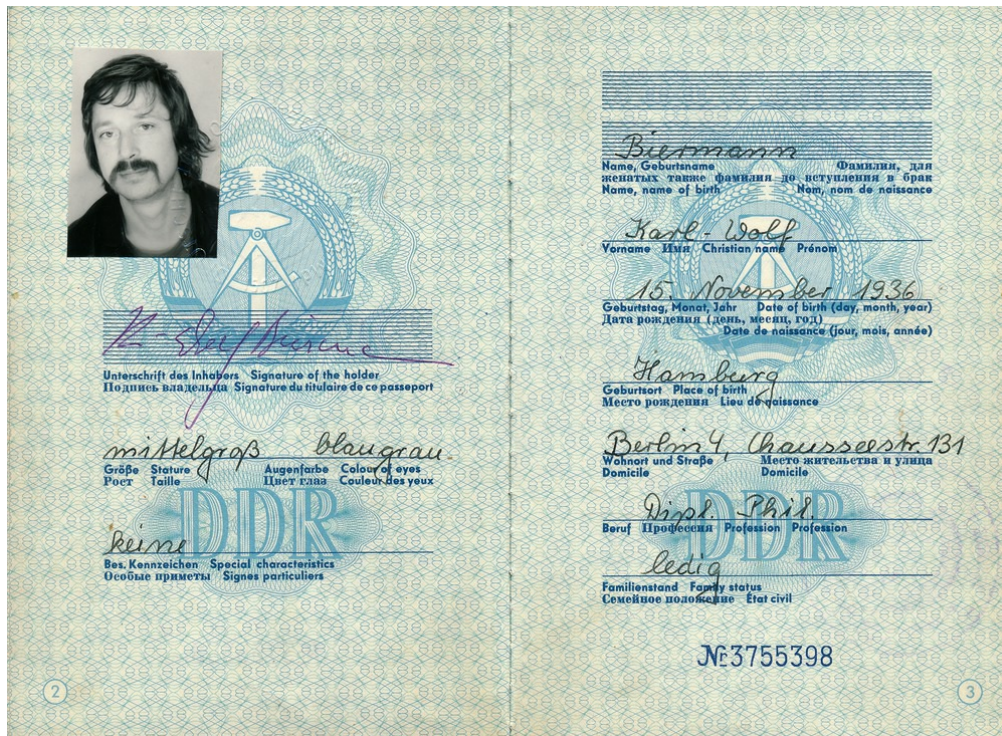 K-Wolf Biermann
Unterschrift des Inhabers Signature of the holder
Подпись владельца Signature du titulaire de ce passeport
mittelgroß blaugrau
Größe Stature Augenfarbe Colour of eyes
Рост Taille Цвет глаз Couleur des yeux
DDR
keine
Bes. Kennzeichen Special characteristics
Особые приметы Signes particuliers
2
Biermann
Name, Geburtsname Фамилия, для
женатых также фамилия до вступления в брак
Name, name of birth Nom, nom de naissance
Karl-Wolf
Vorname Имя Christian name Prénom
15. November 1936
Geburtstag, Monat, Jahr Date of birth (day, month, year)
Дата рождения (день, месяц, год)
Date de naissance (jour, mois, année)
Hamburg
Geburtsort Place of birth
Место рождения Lieu de naissance
Berlin 4, Chausseestr. 131
Wohnort und Straße Место жительства и улица
Domicile Domicile
Dipl. Phil.
Beruf Профессия Profession Profession
DDR
ledig
Familienstand Family status
Семейное положение État civil
№3755398
3